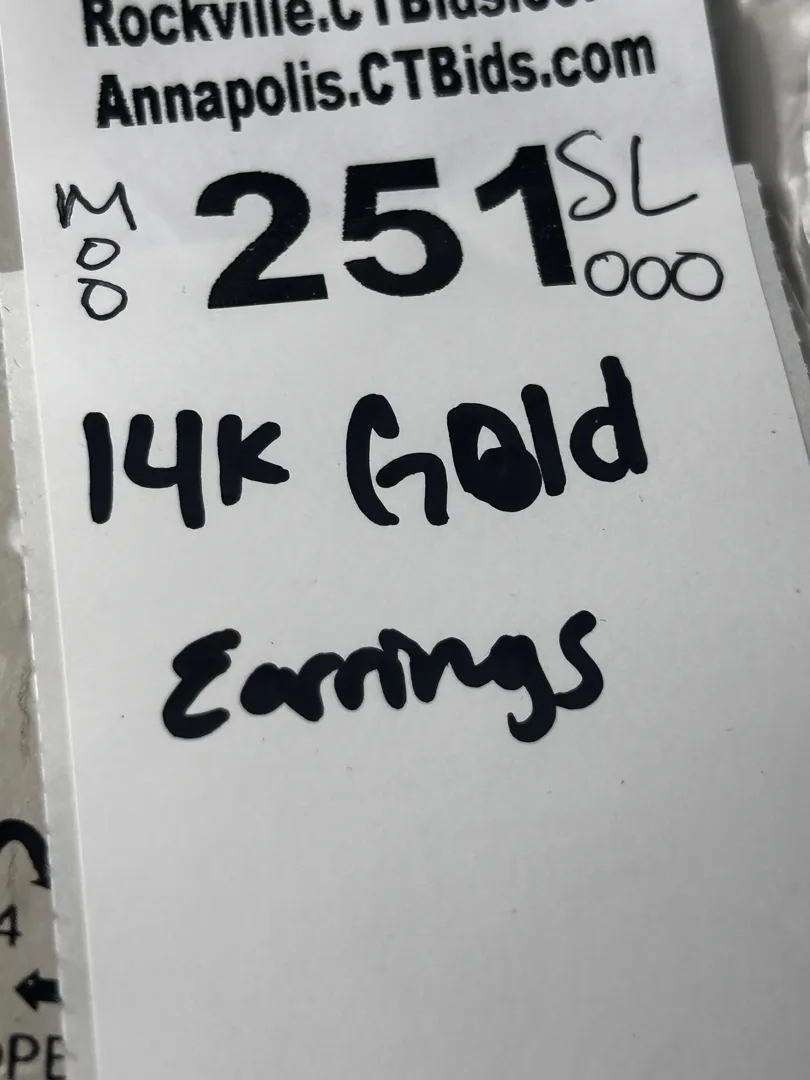 Rockville.CTBids.com
Annapolis.CTBids.com
M
o
o
251
SL
000
14K Gold
Earrings
4